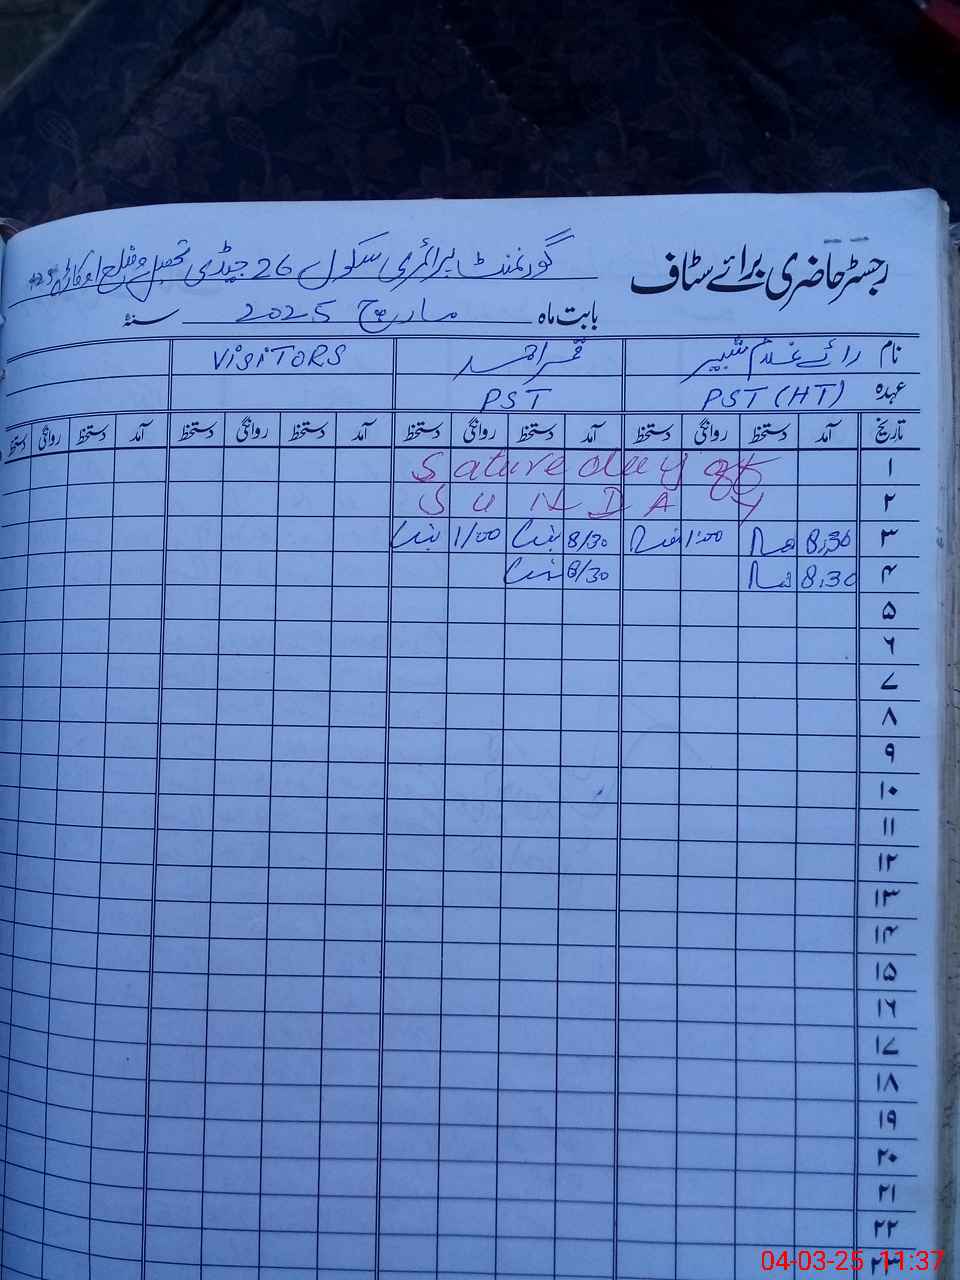 رجسٹر حاضری برائے سٹاف گورنمنٹ پرائمری سکول 26 جیڈی تحصیل و ضلع اوکاڑہ
بابت ماہ مارچ 2025 سنہ
نام رائے غلام شبیر قمر احمد VISITORS
عہدہ PST (HT) PST
تاریخ آمد دستخط روانگی دستخط آمد دستخط روانگی دستخط آمد دستخط روانگی دستخط آمد دستخط روانگی دستخط
۱ Satureday off
۲ SUNDAY
۳ 8:30 1:00 8/30 1/00
۴ 8:30 8/30
۵
۶
۷
۸
۹
۱۰
۱۱
۱۲
۱۳
۱۴
۱۵
۱۶
۱۷
۱۸
۱۹
۲۰
۲۱
۲۲
۲۳
04-03-25 11:37